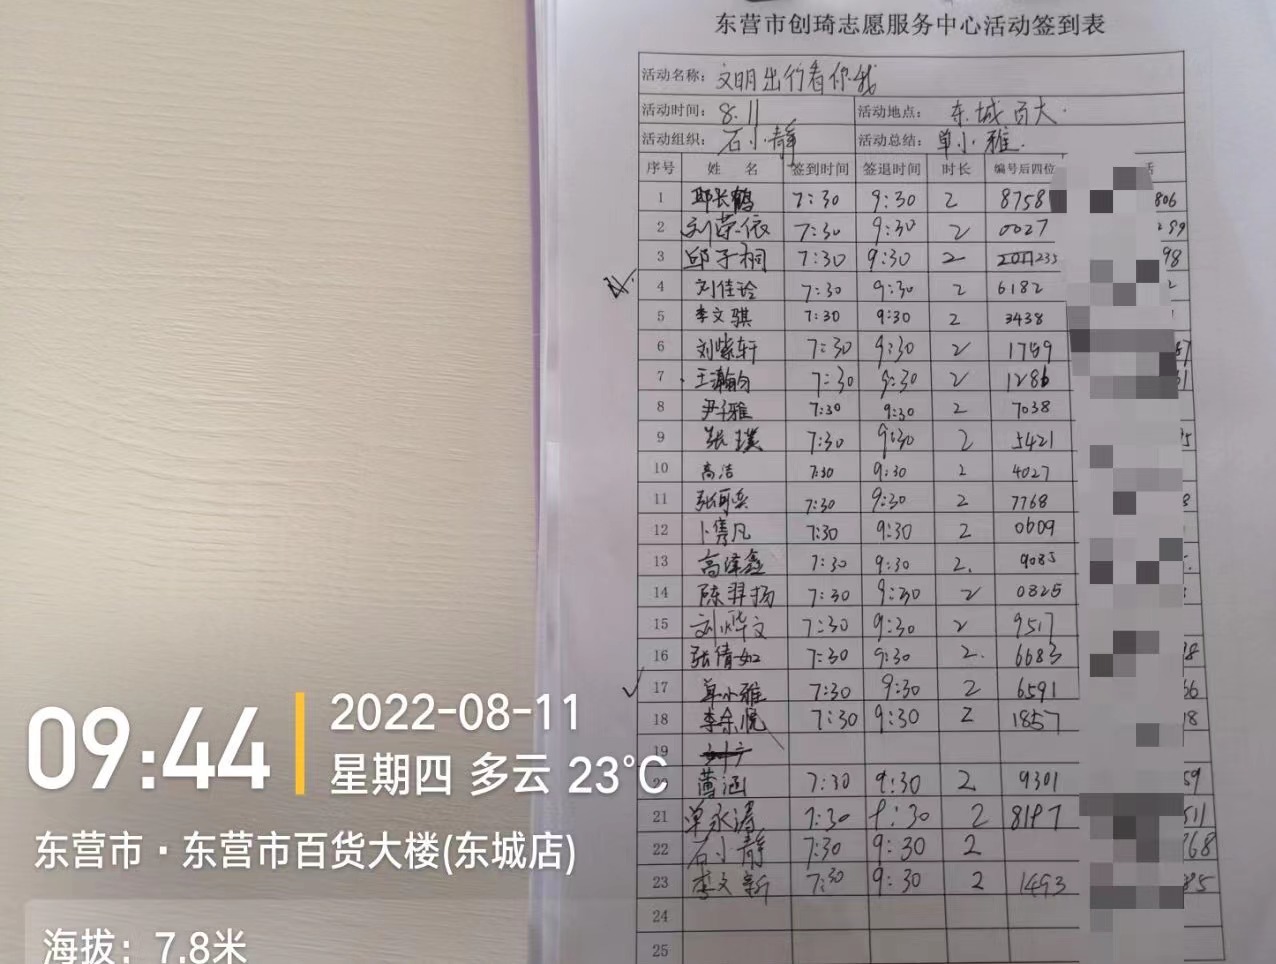 东营市创琦志愿服务中心活动签到表
活动名称: 文明出行看你我
活动时间: 8.11 活动地点: 东城百大
活动组织: 石小静 活动总结: 单小雅
序号 姓 名 签到时间 签退时间 时长 编号后四位 话
1 邱长鹤 7:30 9:30 2 8758 806
2 刘荣依 7:30 9:30 2 0027
3 邱子桐 7:30 9:30 2 98
4 刘佳玲 7:30 9:30 2 6182 2
5 李文骐 7:30 9:30 2 3438
6 刘紫轩 7:30 9:30 2 1759
7 王瀚钧 7:30 9:30 2 1286
8 尹雅 7:30 9:30 2 7038
9 张璞 7:30 9:30 2 5421
10 高洁 7:30 9:30 2 4027
11 张何奕 7:30 9:30 2 7768
12 卜隽凡 7:30 9:30 2 0609
13 高泽鑫 7:30 9:30 2 9085
14 陈羿扬 7:30 9:30 2 0825
15 刘烨文 7:30 9:30 2 9517
16 张倩如 7:30 9:30 2 6683
17 单小雅 7:30 9:30 2 6591
18 李余悦 7:30 9:30 2 1857 18
19
20 涵 7:30 9:30 2 9301 59
21 单永涛 7:30 9:30 2 8197 511
22 石小静 7:30 9:30 2 768
23 李文新 7:30 9:30 2 1493
24
25
09:44
2022-08-11
星期四 多云 23°C
东营市·东营市百货大楼(东城店)
海拔: 7.8米